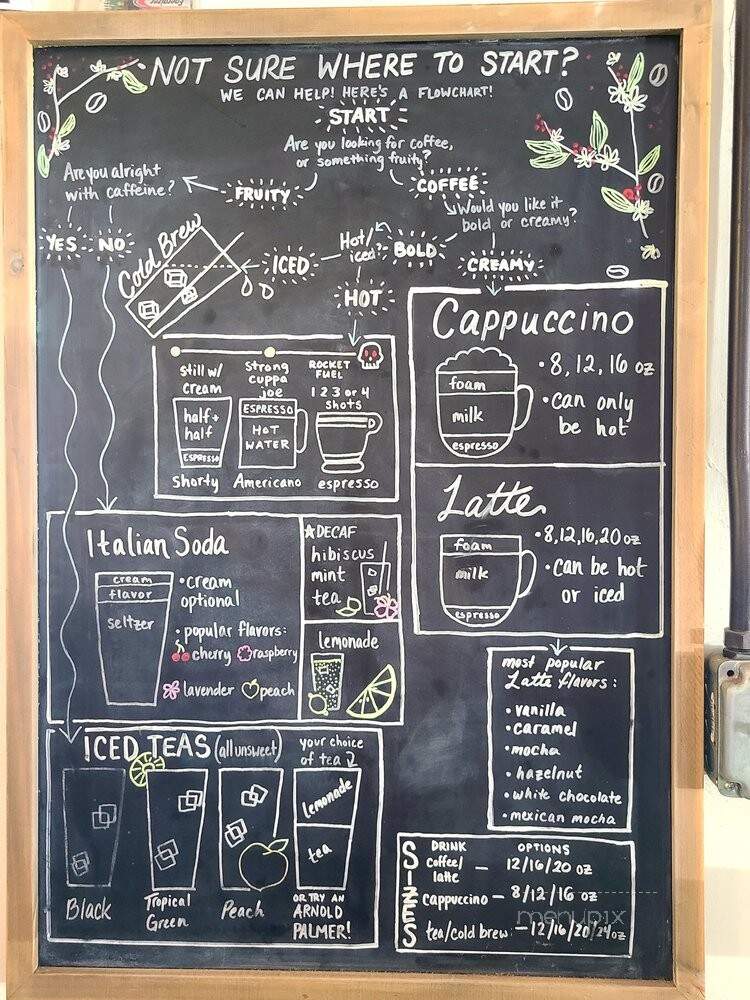 NOT SURE WHERE TO START?
WE CAN HELP! HERE'S A FLOWCHART!
START
Are you looking for coffee,
or something fruity?
FRUITY
COFFEE
Are you alright
with caffeine?
YES
NO
Would you like it
bold or creamy?
BOLD
CREAMY
Hot/
iced?
ICED
HOT
Cold Brew
still w/
cream
half +
half
ESPRESSO
Shorty
strong
cuppa
joe
ESPRESSO
HOT
WATER
Americano
ROCKET
FUEL
1 2 3 or 4
shots
espresso
Cappuccino
foam
milk
espresso
• 8, 12, 16 oz
• can only
be hot
Latte
foam
milk
espresso
• 8, 12, 16, 20 oz
• can be hot
or iced
most popular
Latte flavors:
• vanilla
• caramel
• mocha
• hazelnut
• white chocolate
• mexican mocha
Italian Soda
cream
flavor
seltzer
• cream
optional
• popular flavors:
cherry raspberry
lavender peach
★DECAF
hibiscus
mint
tea
lemonade
ICED TEAS (all unsweet)
your choice
of tea
Black
Tropical
Green
Peach
lemonade
tea
OR TRY AN
ARNOLD
PALMER!
SIZES
DRINK OPTIONS
coffee/
latte — 12/16/20 oz
cappuccino — 8/12/16 oz
tea/cold brew — 12/16/20/24oz
menupix